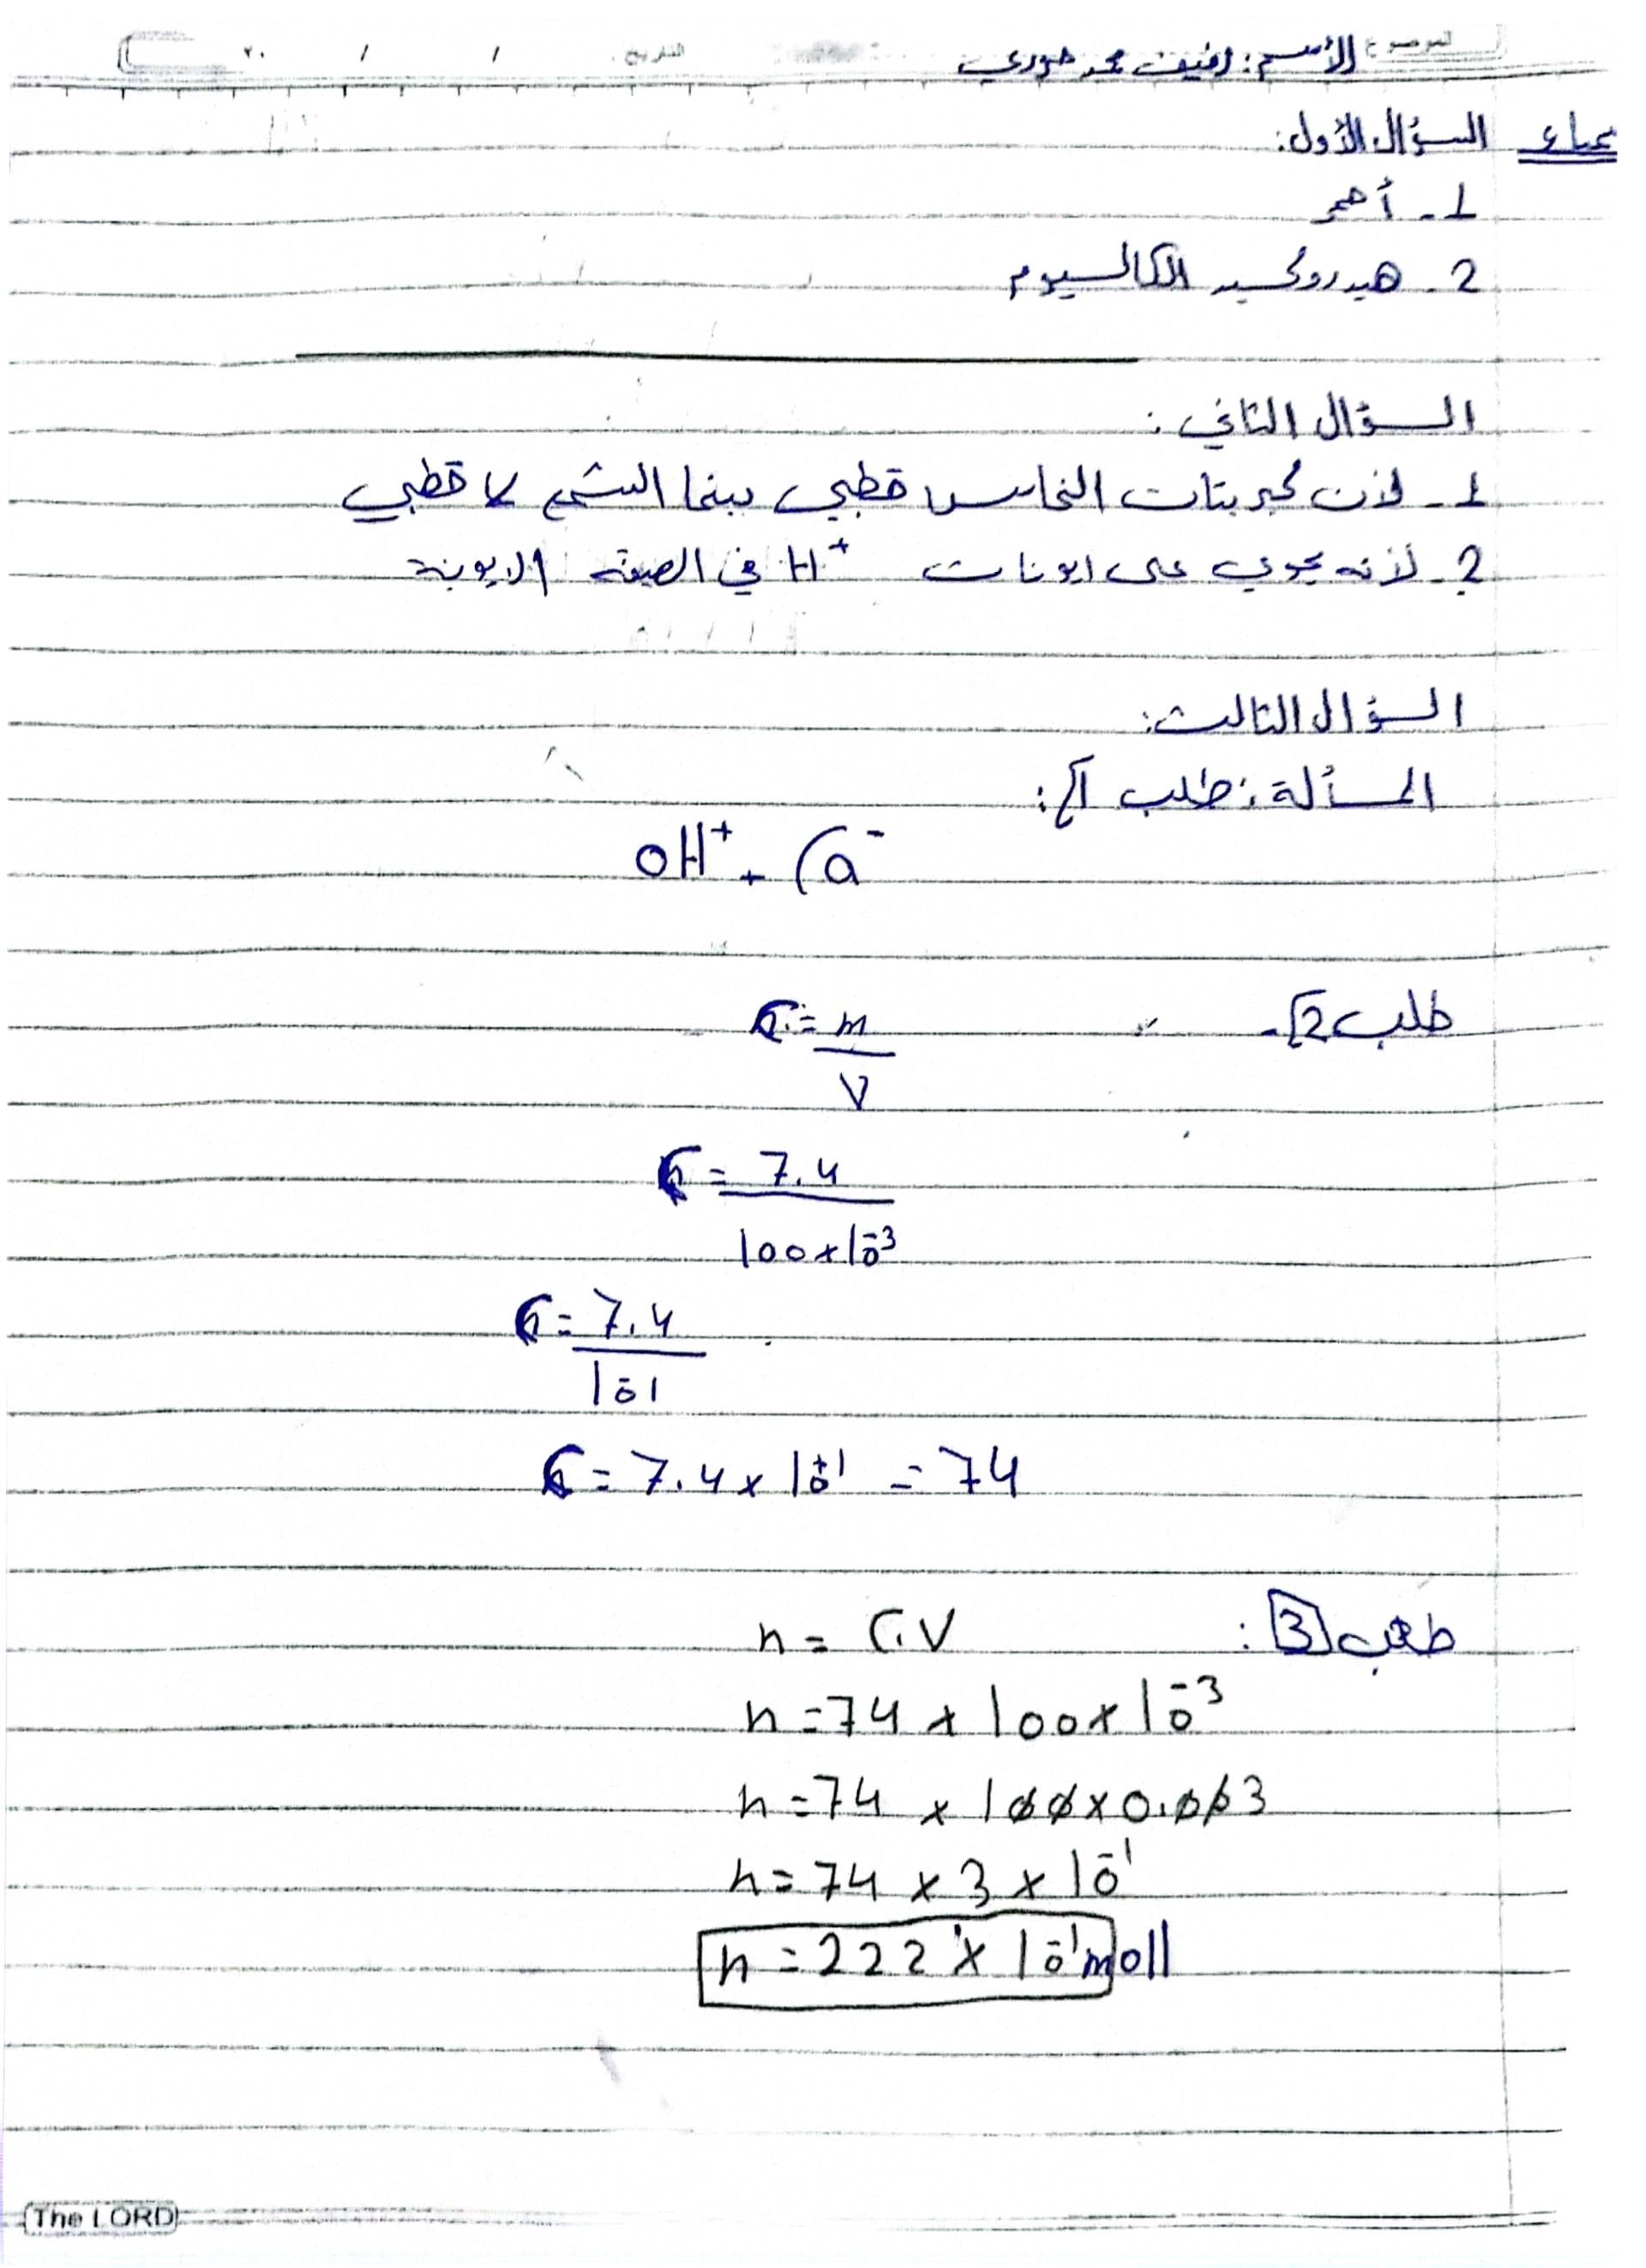 الموضوع الأسم: محمد حوري التاريخ / / ٢٠
السؤال الأول:
1- أحمر
2- هيدروكسيد الكالسيوم
السؤال الثاني:
1- لأن كبريتات النحاس قطبي بينما الشمع لا قطبي
2- لأنه يحوي على ايونات H⁺ في الصيغة الايونية
السؤال الثالث:
المسألة: طلب 1:
OH⁺ + Ca⁻
طلب 2- C = m / V
C = 7.4 / 100×10⁻³
C = 7.4 / 10⁻¹
C = 7.4 × 10⁺¹ = 74
طلب 3: n = C.V
n = 74 × 100 × 10⁻³
n = 74 × 100 × 0.003
n = 74 × 3 × 10⁻¹
n = 222 × 10⁻¹ moll
The LORD